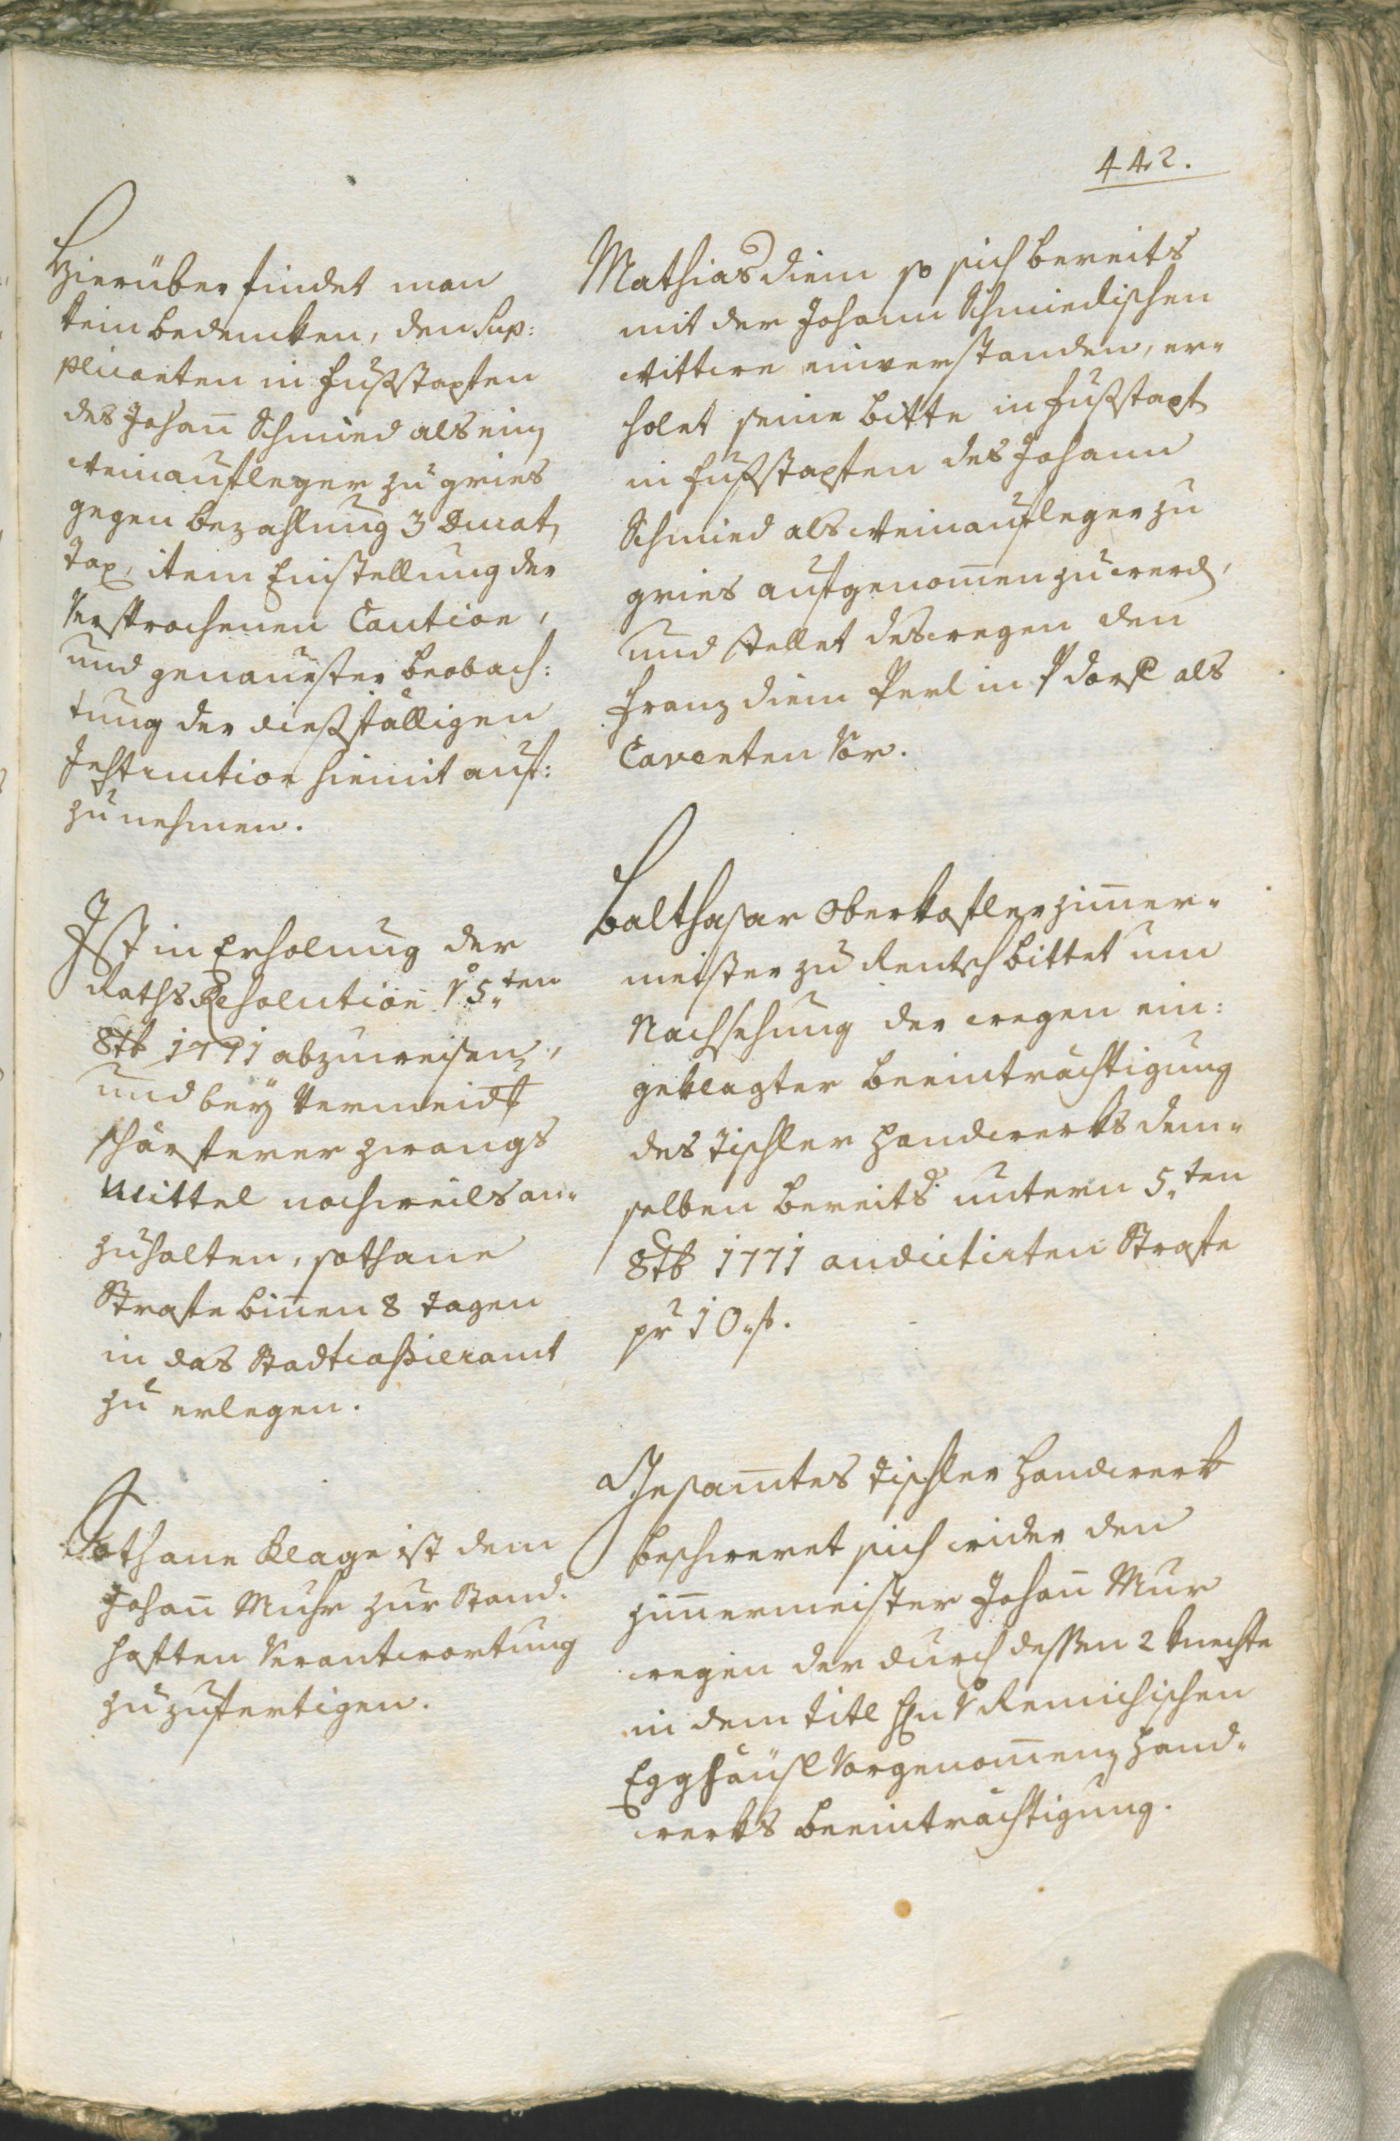 442.
Hierüber findet man
kein bedencken, den Sup:
plicanten in fußstapfen
des Johañ Schmied als ein
Weinaufleger zu gries
gegen bezahlung 3 Ducat
Tax, item Einstellung der
Versprochenen Caution,
und genauester beobach:
tung der diesfälligen
Instruction hiemit auf:
zunehmen.
Ist in Erholung der
Raths Resolution v 5.ten
8tb 1771 abzuweisen,
und bey Vermeidt
schärferer zwangs
Mittel nachweils an-
zuhalten, sothane
Strafe biñen 8 tagen
in das Stadtcassieramt
zu erlegen.
Sothane Klage ist dem
Johañ Muhr zur Stand:
haften Verantwortung
zuzufertigen.
Mathias diem so sich bereits
mit der Johann Schmiedischen
Wittwe einverstanden, er-
holet seine bitte in fußstapf
in fußstapfen des Johann
Schmied als Weinaufleger zu
gries aufgenom̃en zu werd,
und stellet deswegen den
franz diem Perl in dorf als
Caventen Vor.
Balthasar Oberkofler zim̃er-
meister zu Rentsch bittet um
Nachsehung der wegen ein:
geklagter beeinträchtigung
des tischler Handwerks dem-
selben bereits untern 5.ten
8tb 1771 andictirten Strafe
pr 10 f.
Gesam̃tes tischler Handwerk
beschweret sich wider den
Zim̃ermeister Johañ Mur
wegen der durch dessen 2 knechte
in dem titl Hn v Remichischen
Egghäusl Vorgenom̃enen Hand-
werks beeinträchtigung.